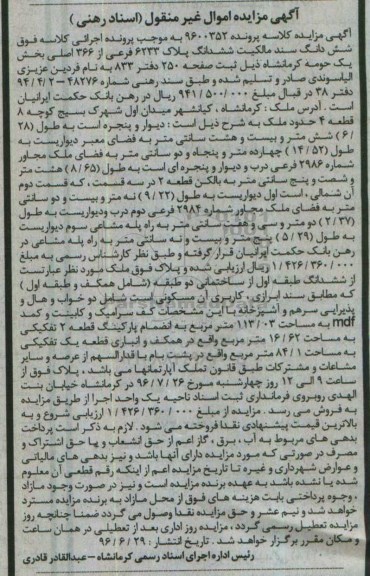 آگهی مزایده اموال غیر منقول (اسناد رهنی)
آگهی مزایده کلاسه پرونده ۹۶۰۰۳۵۲ به موجب پرونده اجرائی کلاسه فوق
شش دانگ سند مالکیت ششدانگ پلاک ۶۲۳۳ فرعی از ۳۶۶ اصلی بخش
یک حومه کرمانشاه ذیل ثبت صفحه ۲۵۰ دفتر ۸۳۳ به نام فردین عزیزی
الیاسوندی صادر و تسلیم شده و طبق سند رهنی شماره ۴۸۲۷۶ – ۹۴/۴/۲
دفتر ۳۸ در قبال مبلغ ۹۴۱/۵۰۰/۰۰۰ ریال در رهن بانک حکمت ایرانیان
است. آدرس ملک: کرمانشاه، کیانشهر میدان اول شهرک بسیج کوچه ۸
قطعه ۴ حدود ملک به شرح ذیل است: دیوار و پنجره است به طول (۲۸
/۶) شش متر و بیست و هشت سانتی متر به فضای معبر دیواریست به
طول (۱۴/۵۲) چهارده متر و پنجاه و دو سانتی متر به فضای ملک مجاور
شماره ۲۹۸۶ فرعی درب و دیوار و پنجره ای است به طول (۸/۶۵) هشت متر
و شصت و پنج سانتی متر به بالکن قطعه ۲ در سه قسمت، که قسمت دوم
آن شمالی، است اول دیواریست به طول (۹/۲۲) نه متر و بیست و دو سانتی
متر به فضای ملک مجاور شماره ۲۹۸۴ فرعی دوم درب ودیواریست به طول
(۲/۳۷) دو متر و سی و هفت سانتی متر به راه پله مشاعی سوم دیواریست
به طول (۵/۲۹) پنج متر و بیست و نه سانتی متر به راه پله مشاعی در
رهن بانک حکمت ایرانیان قرار گرفته و طبق نظر کارشناس رسمی به مبلغ
۱/۴۲۶/۳۶۰/۰۰۰ ریال ارزیابی شده و پلاک فوق ملک مورد نظر عبارتست
از ششدانگ طبقه اول از ساختمانی دو طبقه (شامل همکف و طبقه اول)
که مطابق سند ابرازی، کاربری آن مسکونی است شامل دو خواب و هال و
پذیرایی سرهم و آشپزخانه با این مشخصات کف سرامیک و کابینت و کمد
mdf به مساحت ۱۱۳/۰۳ متر مربع به انضمام پارکینگ قطعه ۲ تفکیکی
به مساحت ۱۶/۶۲ متر مربع واقع در همکف و انباری قطعه یک تفکیکی
به مساحت ۸۴/۱ متر مربع واقع در پشت بام با قدرالسهم از عرصه و سایر
مشاعات و مشترکات طبق قانون تملک آپارتمانها می باشد، پلاک فوق از
ساعت ۹ الی ۱۲ روز چهارشنبه مورخ ۹۶/۷/۲۶ در کرمانشاه خیابان بنت
الهدی روبروی فرمانداری ثبت اسناد ناحیه یک واحد اجرا از طریق مزایده
به فروش می رسد. مزایده از مبلغ ۱/۴۲۶/۳۶۰/۰۰۰ ارزیابی شروع و به
بالاترین قیمت پیشنهادی نقدا فروخته می شود. لازم به ذکر است پرداخت
بدهی های مربوط به آب، برق، گاز اعم از حق انشعاب و یا حق اشتراک و
مصرف در صورتی که مورد مزایده دارای آنها باشد و نیز بدهی های مالیاتی
و عوارض شهرداری و غیره تا تاریخ مزایده اعم از اینکه رقم قطعی آن معلوم
شده یا نشده باشد به عهده برنده مزایده است و نیز در صورت وجود مازاد
، وجوه پرداختی بابت هزینه های فوق از محل مازاد به برنده مزایده مسترد
خواهد شد و نیم عشر و حق مزایده نقدا وصول می گردد ضمنا چنانچه روز
مزایده تعطیل رسمی گردد، مزایده روز اداری بعد از تعطیلی در همان ساعت
و مکان مقرر برگزار خواهد شد. تاریخ انتشار: ۹۶/۶/۲۹
رئیس اداره اجرای اسناد رسمی کرمانشاه – عبدالقادر قادری